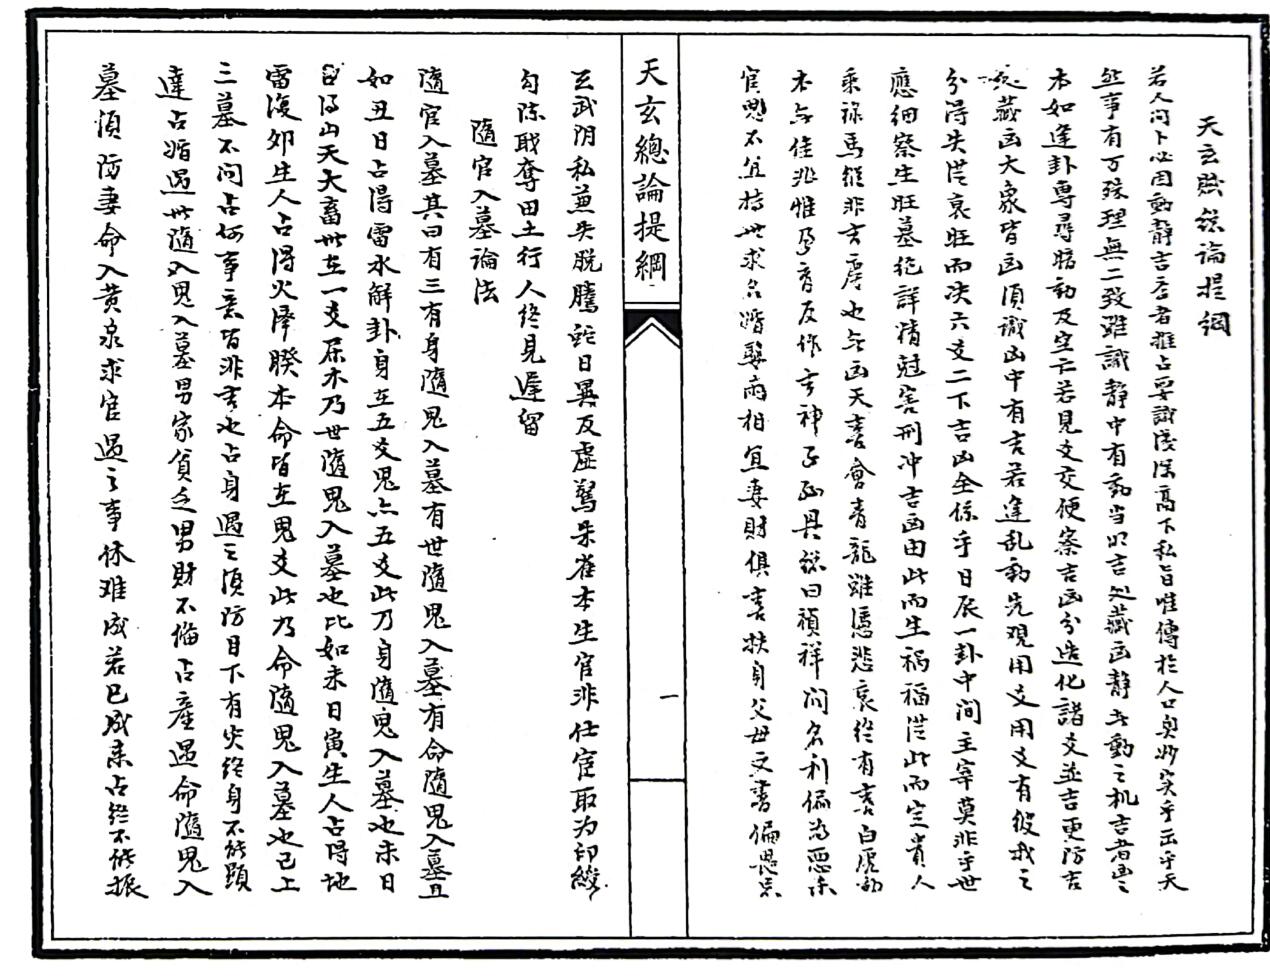 天玄賦總論提綱
若人问卜必因動靜言吉者推占要識淺深髙下私旨唯傳於人口奥妙实乎出乎天
然事有万殊理無二致雖識靜中有動当明吉处藏凶靜者動之机吉者凶之
本如逢卦専尋暗動及空亡若見爻交便察吉凶分造化諸爻並吉更防吉
处藏凶大象皆凶須識凶中有吉若逢乱動先覌用爻用爻有彼我之
分得失從衰旺而决六爻二下吉凶全係乎日辰一卦中间主宰莫非乎世
應细察生旺墓绝詳精冠害刑冲吉凶由此而生禍福從此而定貴人
乘禄馬縱非吉虎也無凶天喜會青龍雖憑悲哀终有喜白虎動
本無佳兆惟孕育反作吉神子孙具総曰禎祥问名利偏为恶杀
官鬼不宜持世求名婚娶两相宜妻财俱喜扶身父母文書偏畏忌
天玄總論提綱
一
玄武阴私兼失脱騰蛇日異及虚驚朱雀本生官非仕宦取为印綬
勾陈耿奪田土行人终見遲留
隨官入墓論法
隨官入墓其曰有三有身隨鬼入墓有世隨鬼入墓有命隨鬼入墓且
如丑日占得雷水解卦身在五爻鬼亦五爻此乃身隨鬼入墓也未日
占得山天大畜世在一爻属木乃世隨鬼入墓也比如未日寅生人占得地
雷復夘生人占得火澤睽本命皆在鬼爻此乃命隨鬼入墓也已上
三墓不问占何事意皆非吉也占身遇之須防目下有灾终身不能顕
達占婚遇世隨鬼入墓男家貧乏男財不俻占產遇命隨鬼入
墓須防妻命入黄泉求官遇之事体难成若已成来占终不能振